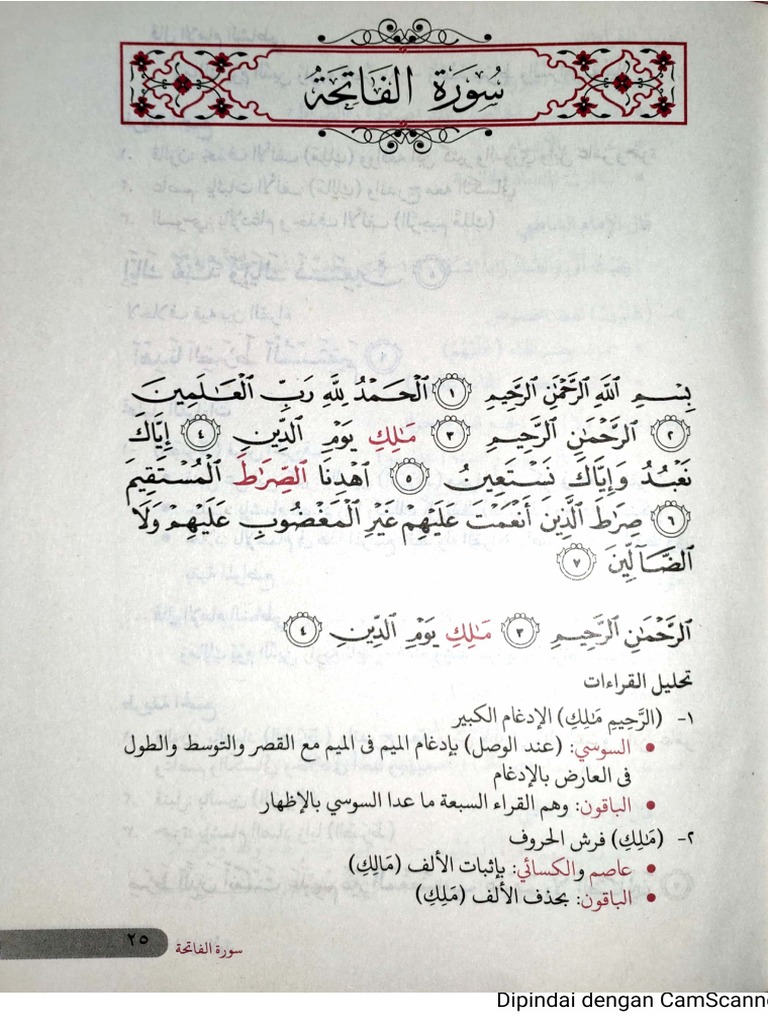 سُورَةُ الفَاتِحَةُ
بِسْمِ ٱللَّهِ ٱلرَّحْمَٰنِ ٱلرَّحِيمِ ١ ٱلْحَمْدُ لِلَّهِ رَبِّ ٱلْعَٰلَمِينَ
٢ ٱلرَّحْمَٰنِ ٱلرَّحِيمِ ٣ مَٰلِكِ يَوْمِ ٱلدِّينِ ٤ إِيَّاكَ
نَعْبُدُ وَإِيَّاكَ نَسْتَعِينُ ٥ ٱهْدِنَا ٱلصِّرَٰطَ ٱلْمُسْتَقِيمَ
٦ صِرَٰطَ ٱلَّذِينَ أَنْعَمْتَ عَلَيْهِمْ غَيْرِ ٱلْمَغْضُوبِ عَلَيْهِمْ وَلَا
ٱلضَّآلِّينَ ٧
ٱلرَّحْمَٰنِ ٱلرَّحِيمِ ٣ مَٰلِكِ يَوْمِ ٱلدِّينِ ٤
تحليل القراءات
١- (الرَّحِيمِ مَلِكِ) الإدغام الكبير
• السوسي: (عند الوصل) بإدغام الميم فى الميم مع القصر والتوسط والطول
فى العارض بالإدغام
• الباقون: وهم القراء السبعة ما عدا السوسي بالإظهار
٢- (مَٰلِكِ) فرش الحروف
• عاصم والكسائي: بإثبات الألف (مَالِكِ)
• الباقون: بحذف الألف (مَلِكِ)
سورة الفاتحة ٢٥
Dipindai dengan CamScanne